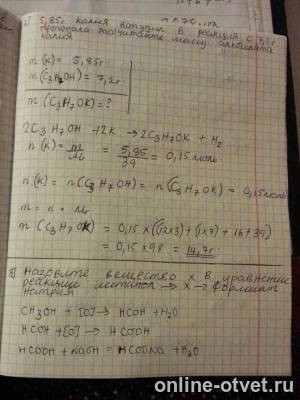 2) 5,85г калия вступил в реакция с 7,2г
пропанола рассчитайте массу алкоголята
калия
m (K) = 5,85г
m (C3H7OH) = 7,2г
m (C3H7OK) = ?
2C3H7OH + 2K → 2C3H7OK + H2
n(K) = m/Mr = 5,85/39 = 0,15 моль
n(K) = n(C3H7OH) = n(C3H7OK) = 0,15 моль
m = n · Mr
m(C3H7OK) = 0,15 × ((12×3) + (1×7) + 16 + 39)
= 0,15 × 98 = 14,7г
3) Назовите вещество X в уравнении
реакции метанол → X → формиат
натрия
CH3OH + [O] → HCOH + H2O
HCOH + [O] → HCOOH
HCOOH + NaOH = HCOONa + H2O
online-otvet.ru